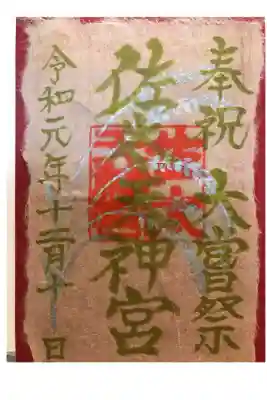 奉祝 大嘗祭
佐 神宮
令和元年十 月十 日